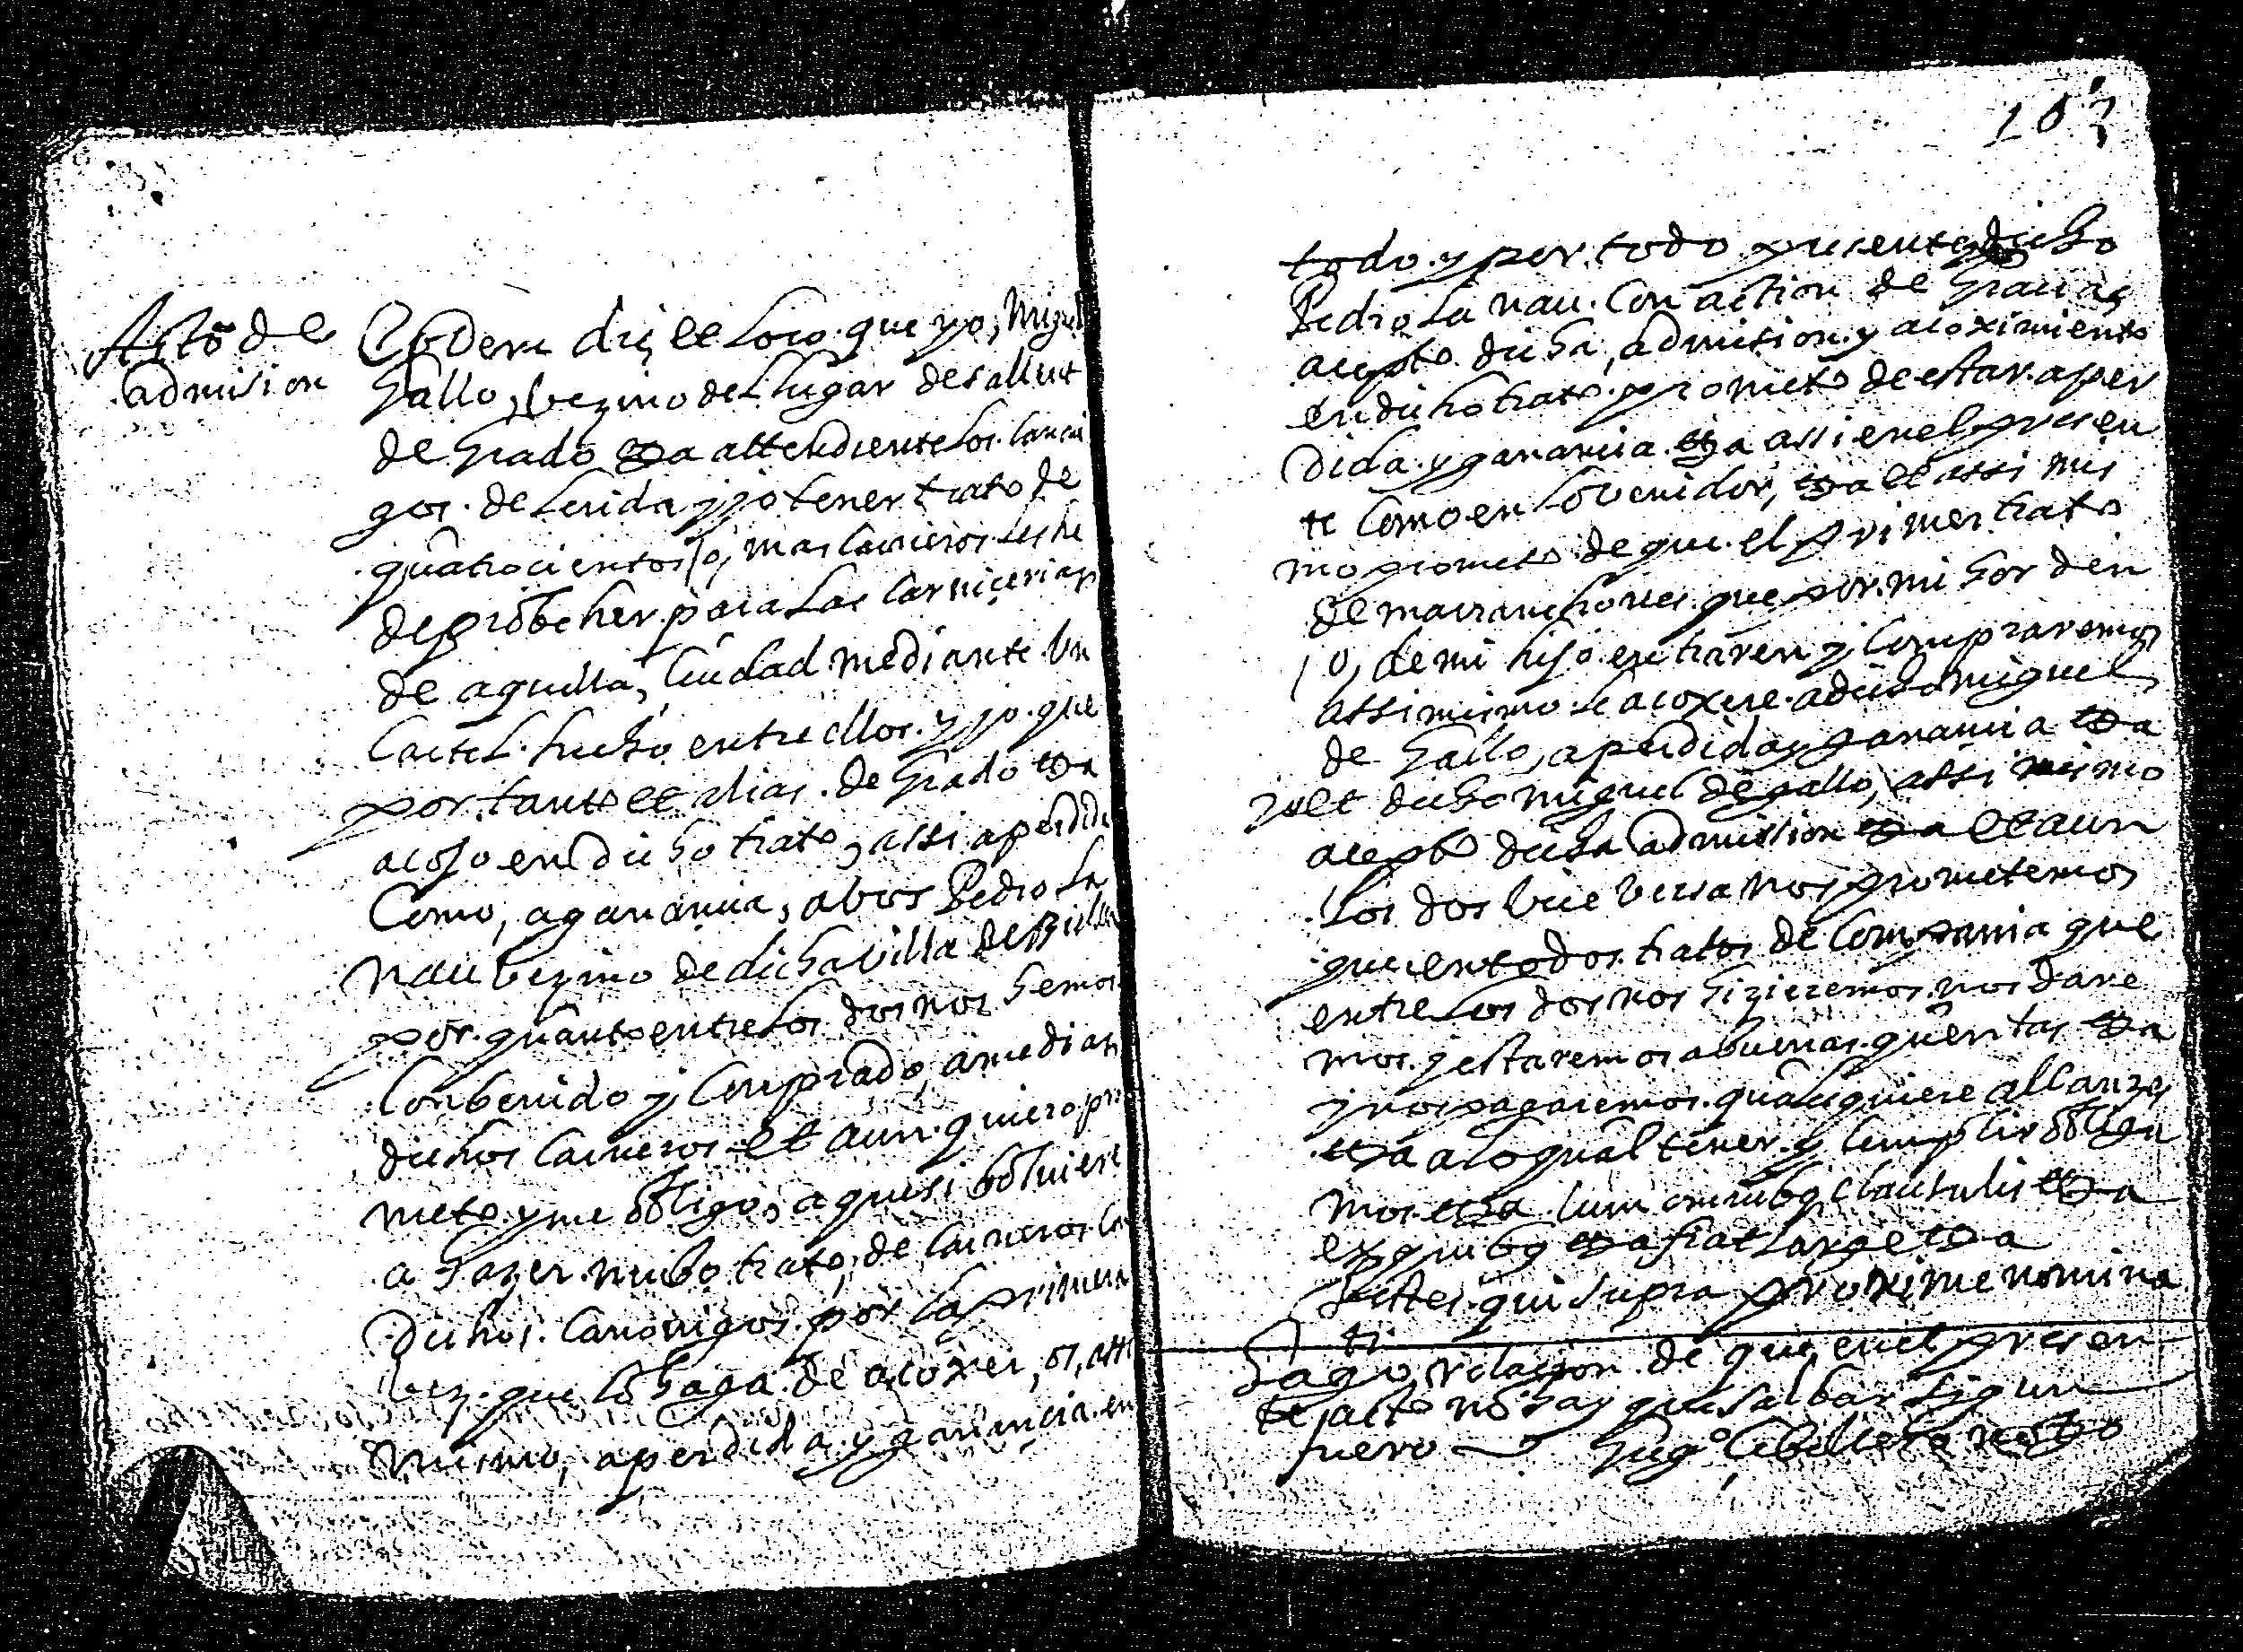 Acto de
admision
Eodem die et loco que yo, Miguel
Gallo, bezino del lugar de sallut
de Grado etca attendiente los canoni
gos de Lerida y yo tener trato de
quatrocientos, o, mas carneros les he
de probeher para las carnicerias
de aquella, Ciudad mediante un
Cartel hecho entre ellos y yo que
por tanto et alias de Grado etca
acojo en dicho trato, assi a perdida
Como, a ganancia, a bos Pedro La
nau bezino de dicha villa de
por quanto entre los dos nos hemos
Conbenido y Comprado, a medias
dichos Carneros et aun quiero pro
meto y me obligo, a que si bolviere
a hazer nuebo trato, de Carneros con
dichos Canonigos por la primera
bez que lo haga de acoxer, os, assi
mismo, a perdida y ganancia en
107
todo y por todo presente dicho
Pedro La nau Con action de Gracias
acepto dicha, admision y acoximiento
en dicho trato prometo de estar a per
dida y ganancia etca assi en el presen
te Como en lo venidor, etca et assi mis
mo prometo de que el primer trato
de marranchones que por mi horden
, o, de mi hijo entraren y Compraremos
assi mismo le acoxere a dicho miguel
de Gallo, a perdida y ganancia etca
yo et dicho miguel de gallo, assi mismo
acepto dicha admission etca et aun
los dos vice versa nos prometemos
que en todos tratos de Compania que
entre los dos nos hizieremos nos dare
mos y estaremos a buenas quentas etca
y nos pagaremos qualsquiere alcanzes
etca a lo qual tener y Cumplir obliga
mos etca cum omnibus clausulis etca
ex quibus etca fiat large etca
Testes qui supra proxime nomina
ti
Hago relacion de que en el presen
te, acto no hay que salbar sigun
fuero